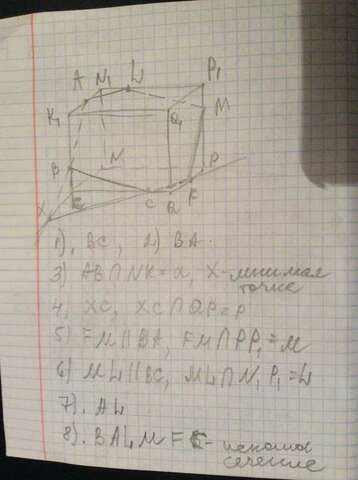 A N₁ L P₁
K₁ Q₁ M
B N P
X K C Q F
1). BC, 2) BA.
3) AB∩NK=x, X-мнимая
точка
4, XC, XC∩QP=P
5) FM||BA, FM∩PP₁=M
6) ML||BC, ML∩N₁P₁=L
7). AL
8). BALMF
сечение